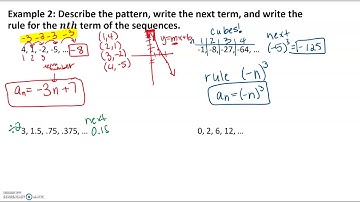 Example 2: Describe the pattern, write the next term, and write the
rule for the nth term of the sequences.
-3 -3 -3 -3
4, 1, -2, -5, ... -8
1 2 3
aₙ = -3n + 7
(1,4)
(2,1)
(3,-2)
(4,-5)
y=mx+b
cubes!
1 2 3 4
-1, -8, -27, -64, ...
next
(-5)³ = -125
rule (-n)³
aₙ = (-n)³
÷2 3, 1.5, .75, .375, ...
next
0.15
0, 2, 6, 12, ...